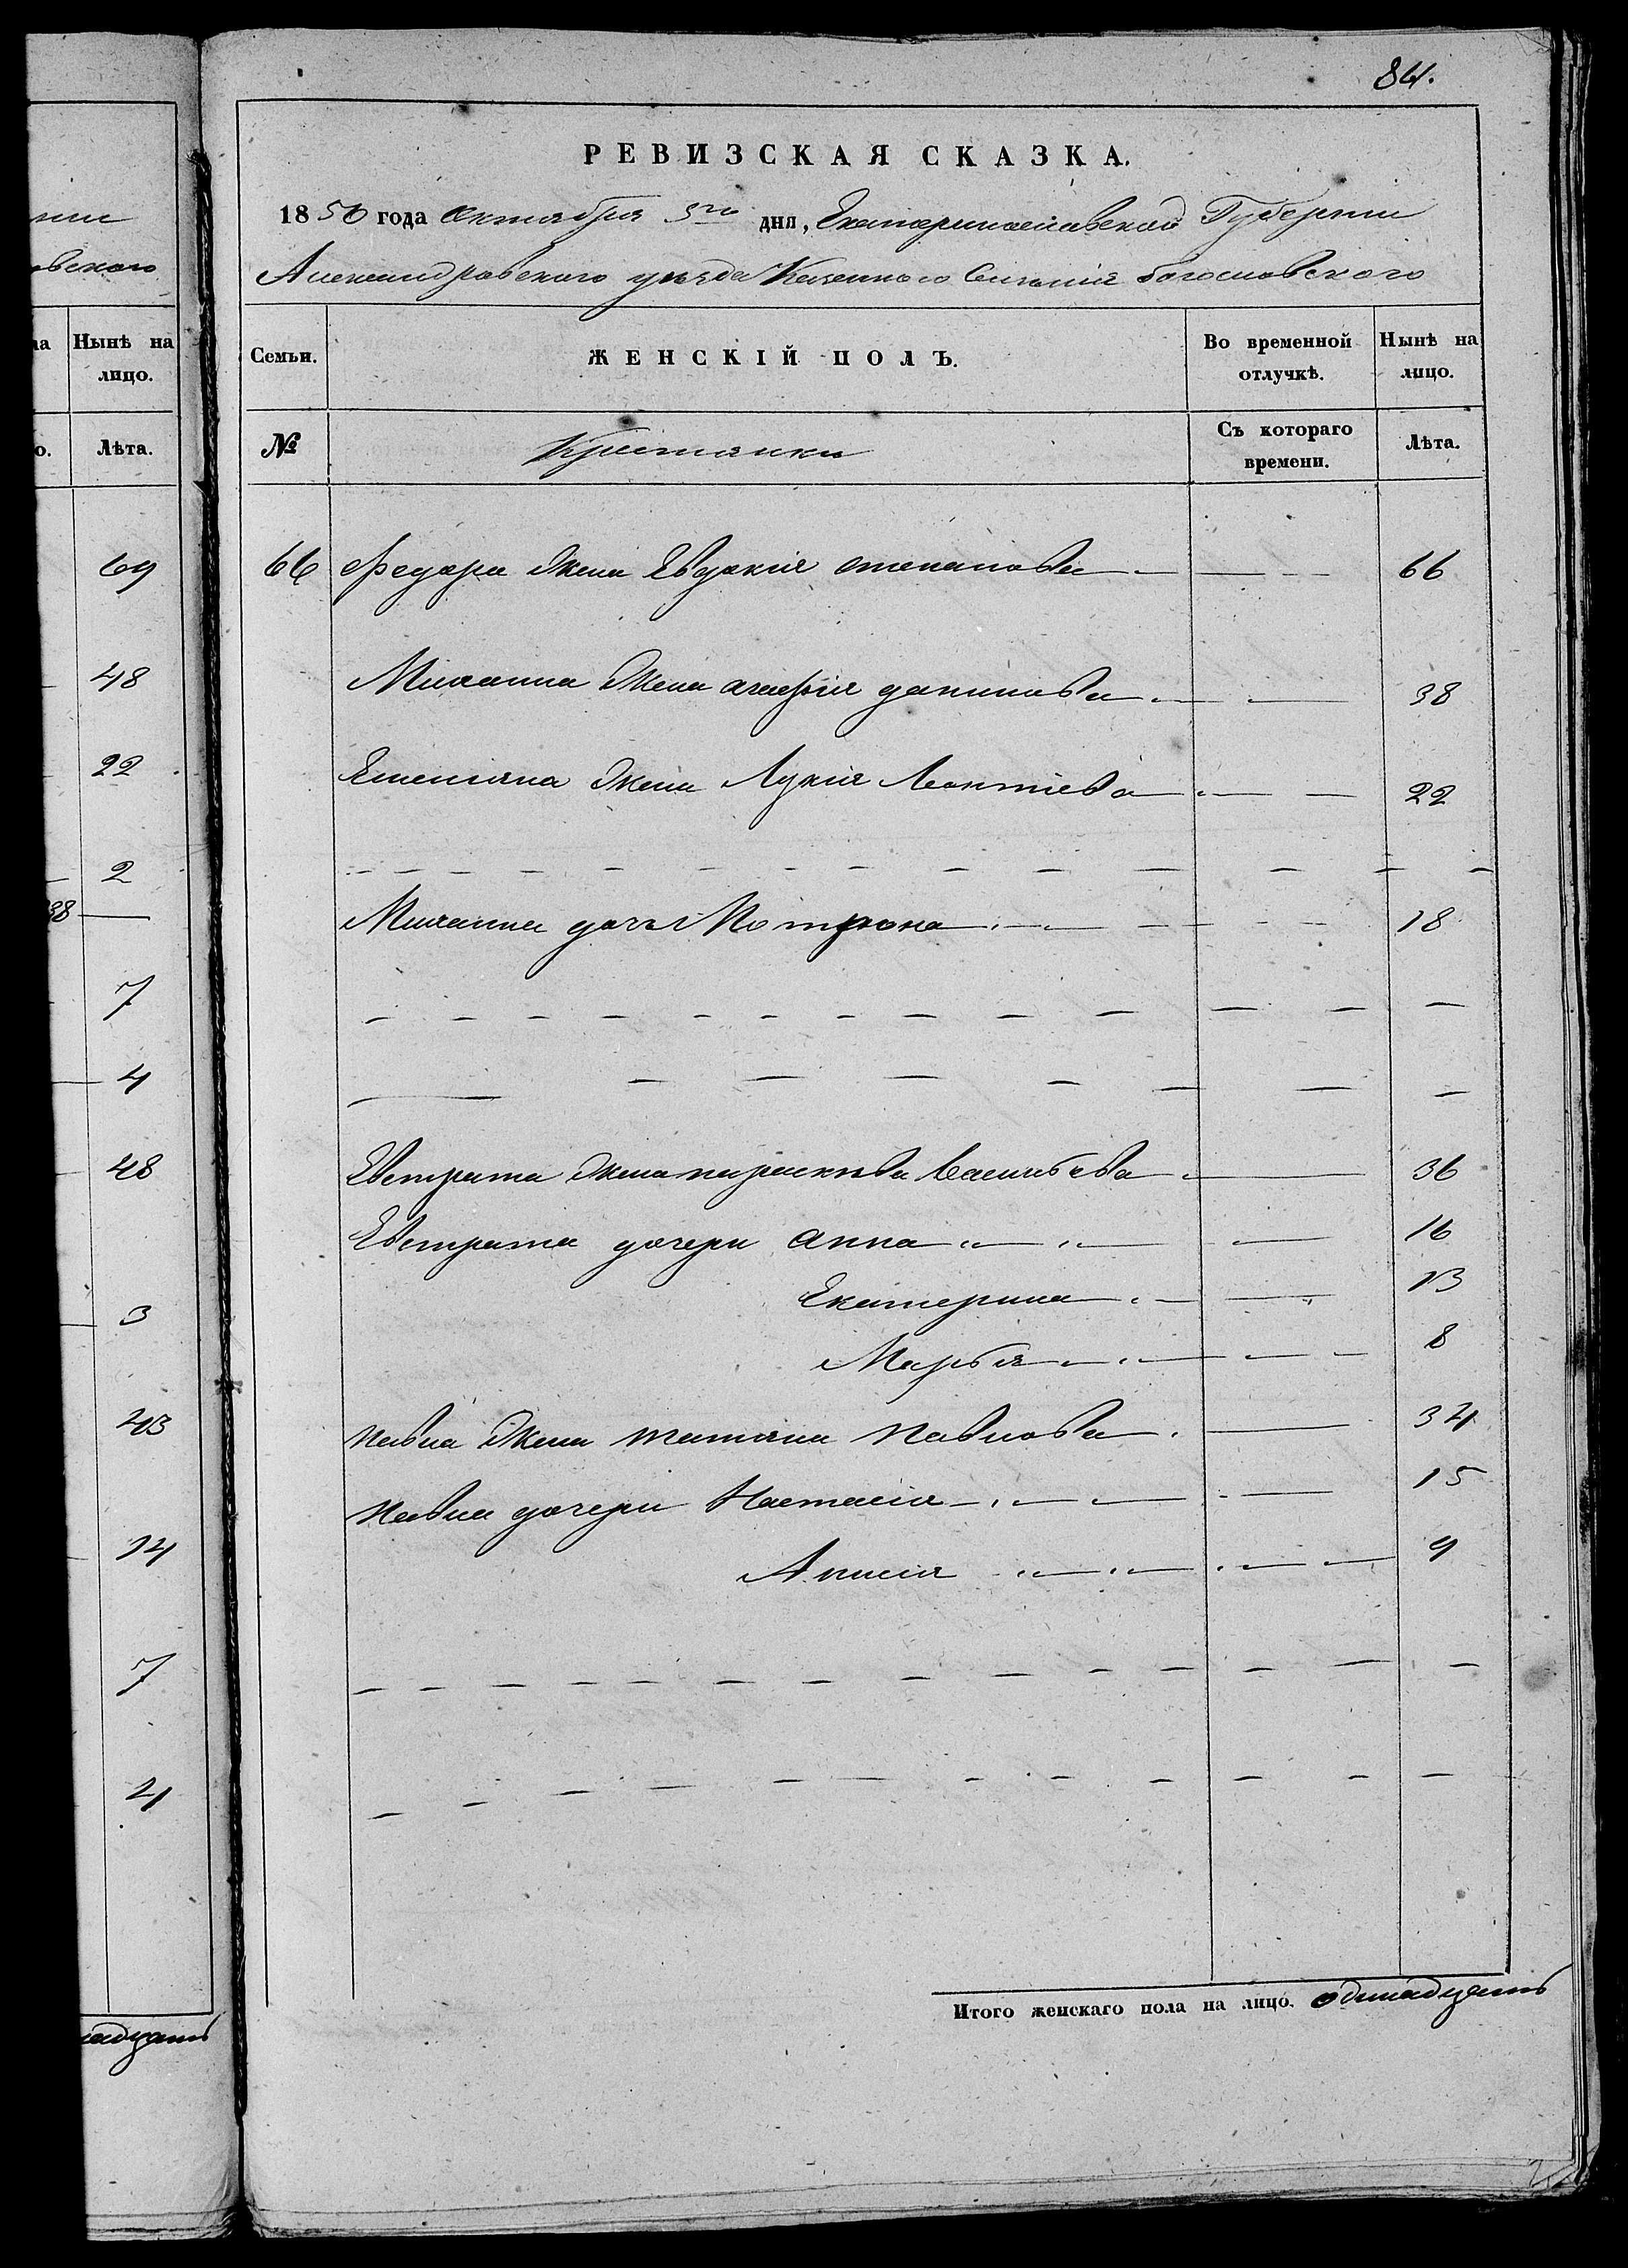 нии
вского
на
Нынѣ на
лицо.
о.
Лѣта.
69
48
22
2
38
7
4
48
3
43
14
7
4
надцать
84.
РЕВИЗСКАЯ СКАЗКА.
1850 года Октября 5го дня, Екатеринославской Губернии
Александровского уѣзда Казенного Селения богословского
Семьи.
ЖЕНСКІЙ ПОЛЪ.
Во временной отлучкѣ.
Нынѣ на лицо.
№
Крестянки
Съ котораго времени.
Лѣта.
66 Федора жена Евдокія степанова 66
Михаила жена агафія данилова 38
Емеляна жена Лукія Леонтіева 22
Михаила дочь Мотрона 18
Евстрата жена параскѣва Васильева 36
Евстрата дочери анна 16
Екатерина 13
Марья 8
павла жена татяна павлова 34
павла дочери Настасія 15
Анисія 9
Итого женскаго пола на лицо. одинадцать